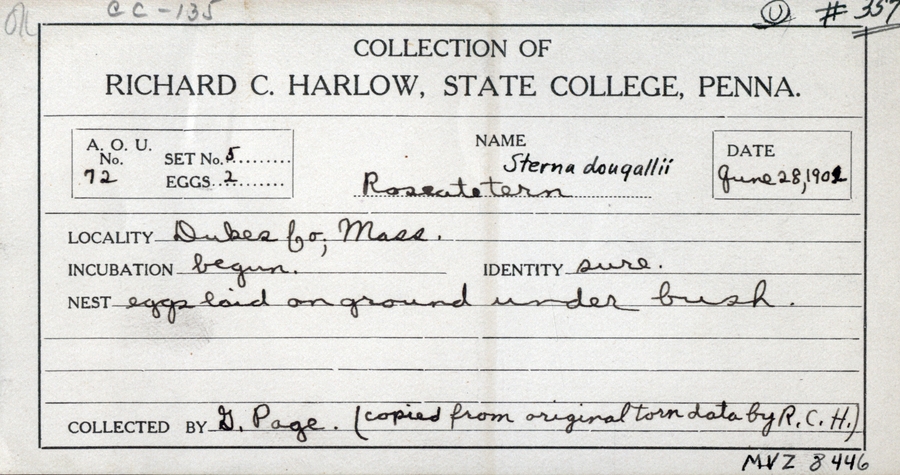 CC-135 # 357
COLLECTION OF
RICHARD C. HARLOW, STATE COLLEGE, PENNA.
A. O. U. No. 72 SET No. 5 EGGS 2
NAME Sterna dougallii
Roseate tern
DATE June 28, 1902
LOCALITY Dukes Co; Mass.
INCUBATION begun. IDENTITY sure.
NEST eggs laid on ground under bush.
COLLECTED BY G. Page. (copied from original torn data by R. C. H.)
MVZ 8446